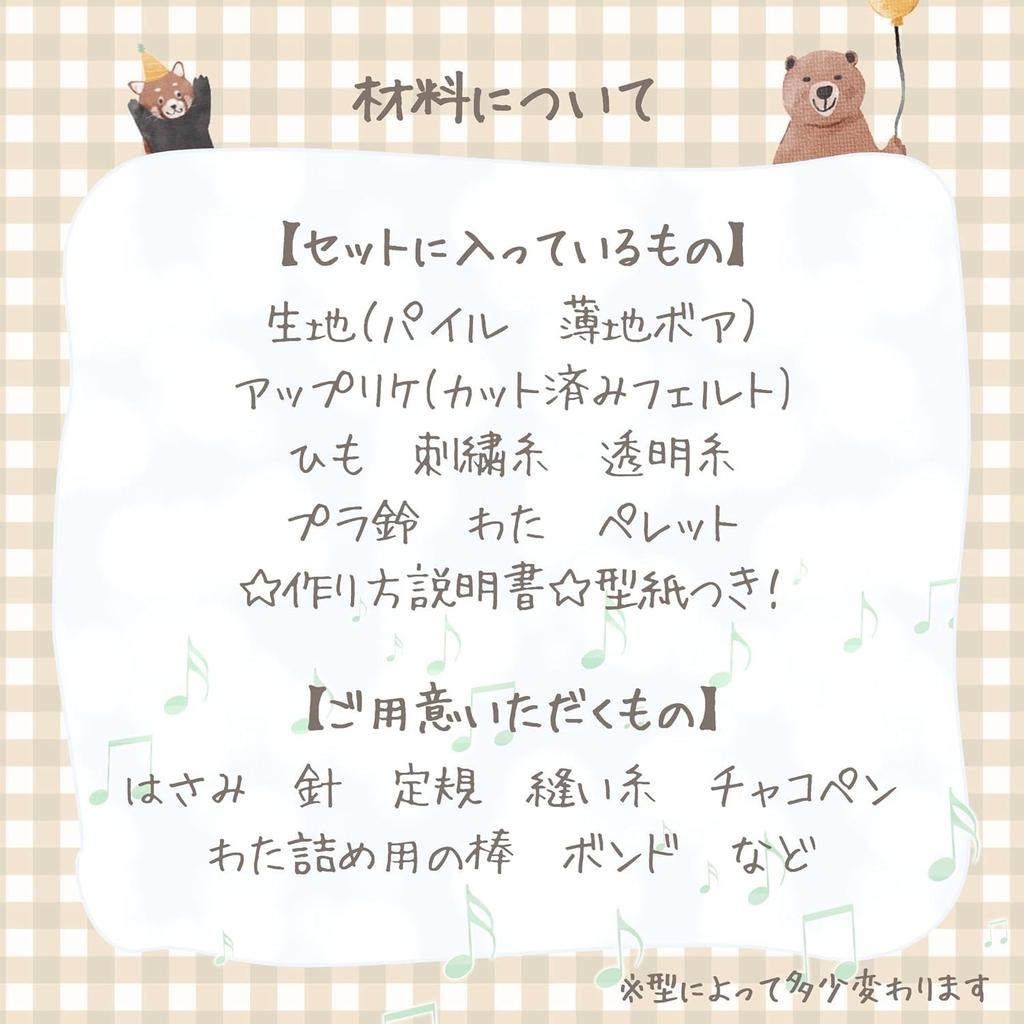 材料について
【セットに入っているもの】
生地(パイル　薄地ボア)
アップリケ(カット済みフェルト)
ひも　刺繍糸　透明糸
プラ鈴　わた　ペレット
☆作り方説明書☆型紙つき!
【ご用意いただくもの】
はさみ　針　定規　縫い糸　チャコペン
わた詰め用の棒　ボンド　など
※型によって多少変わります